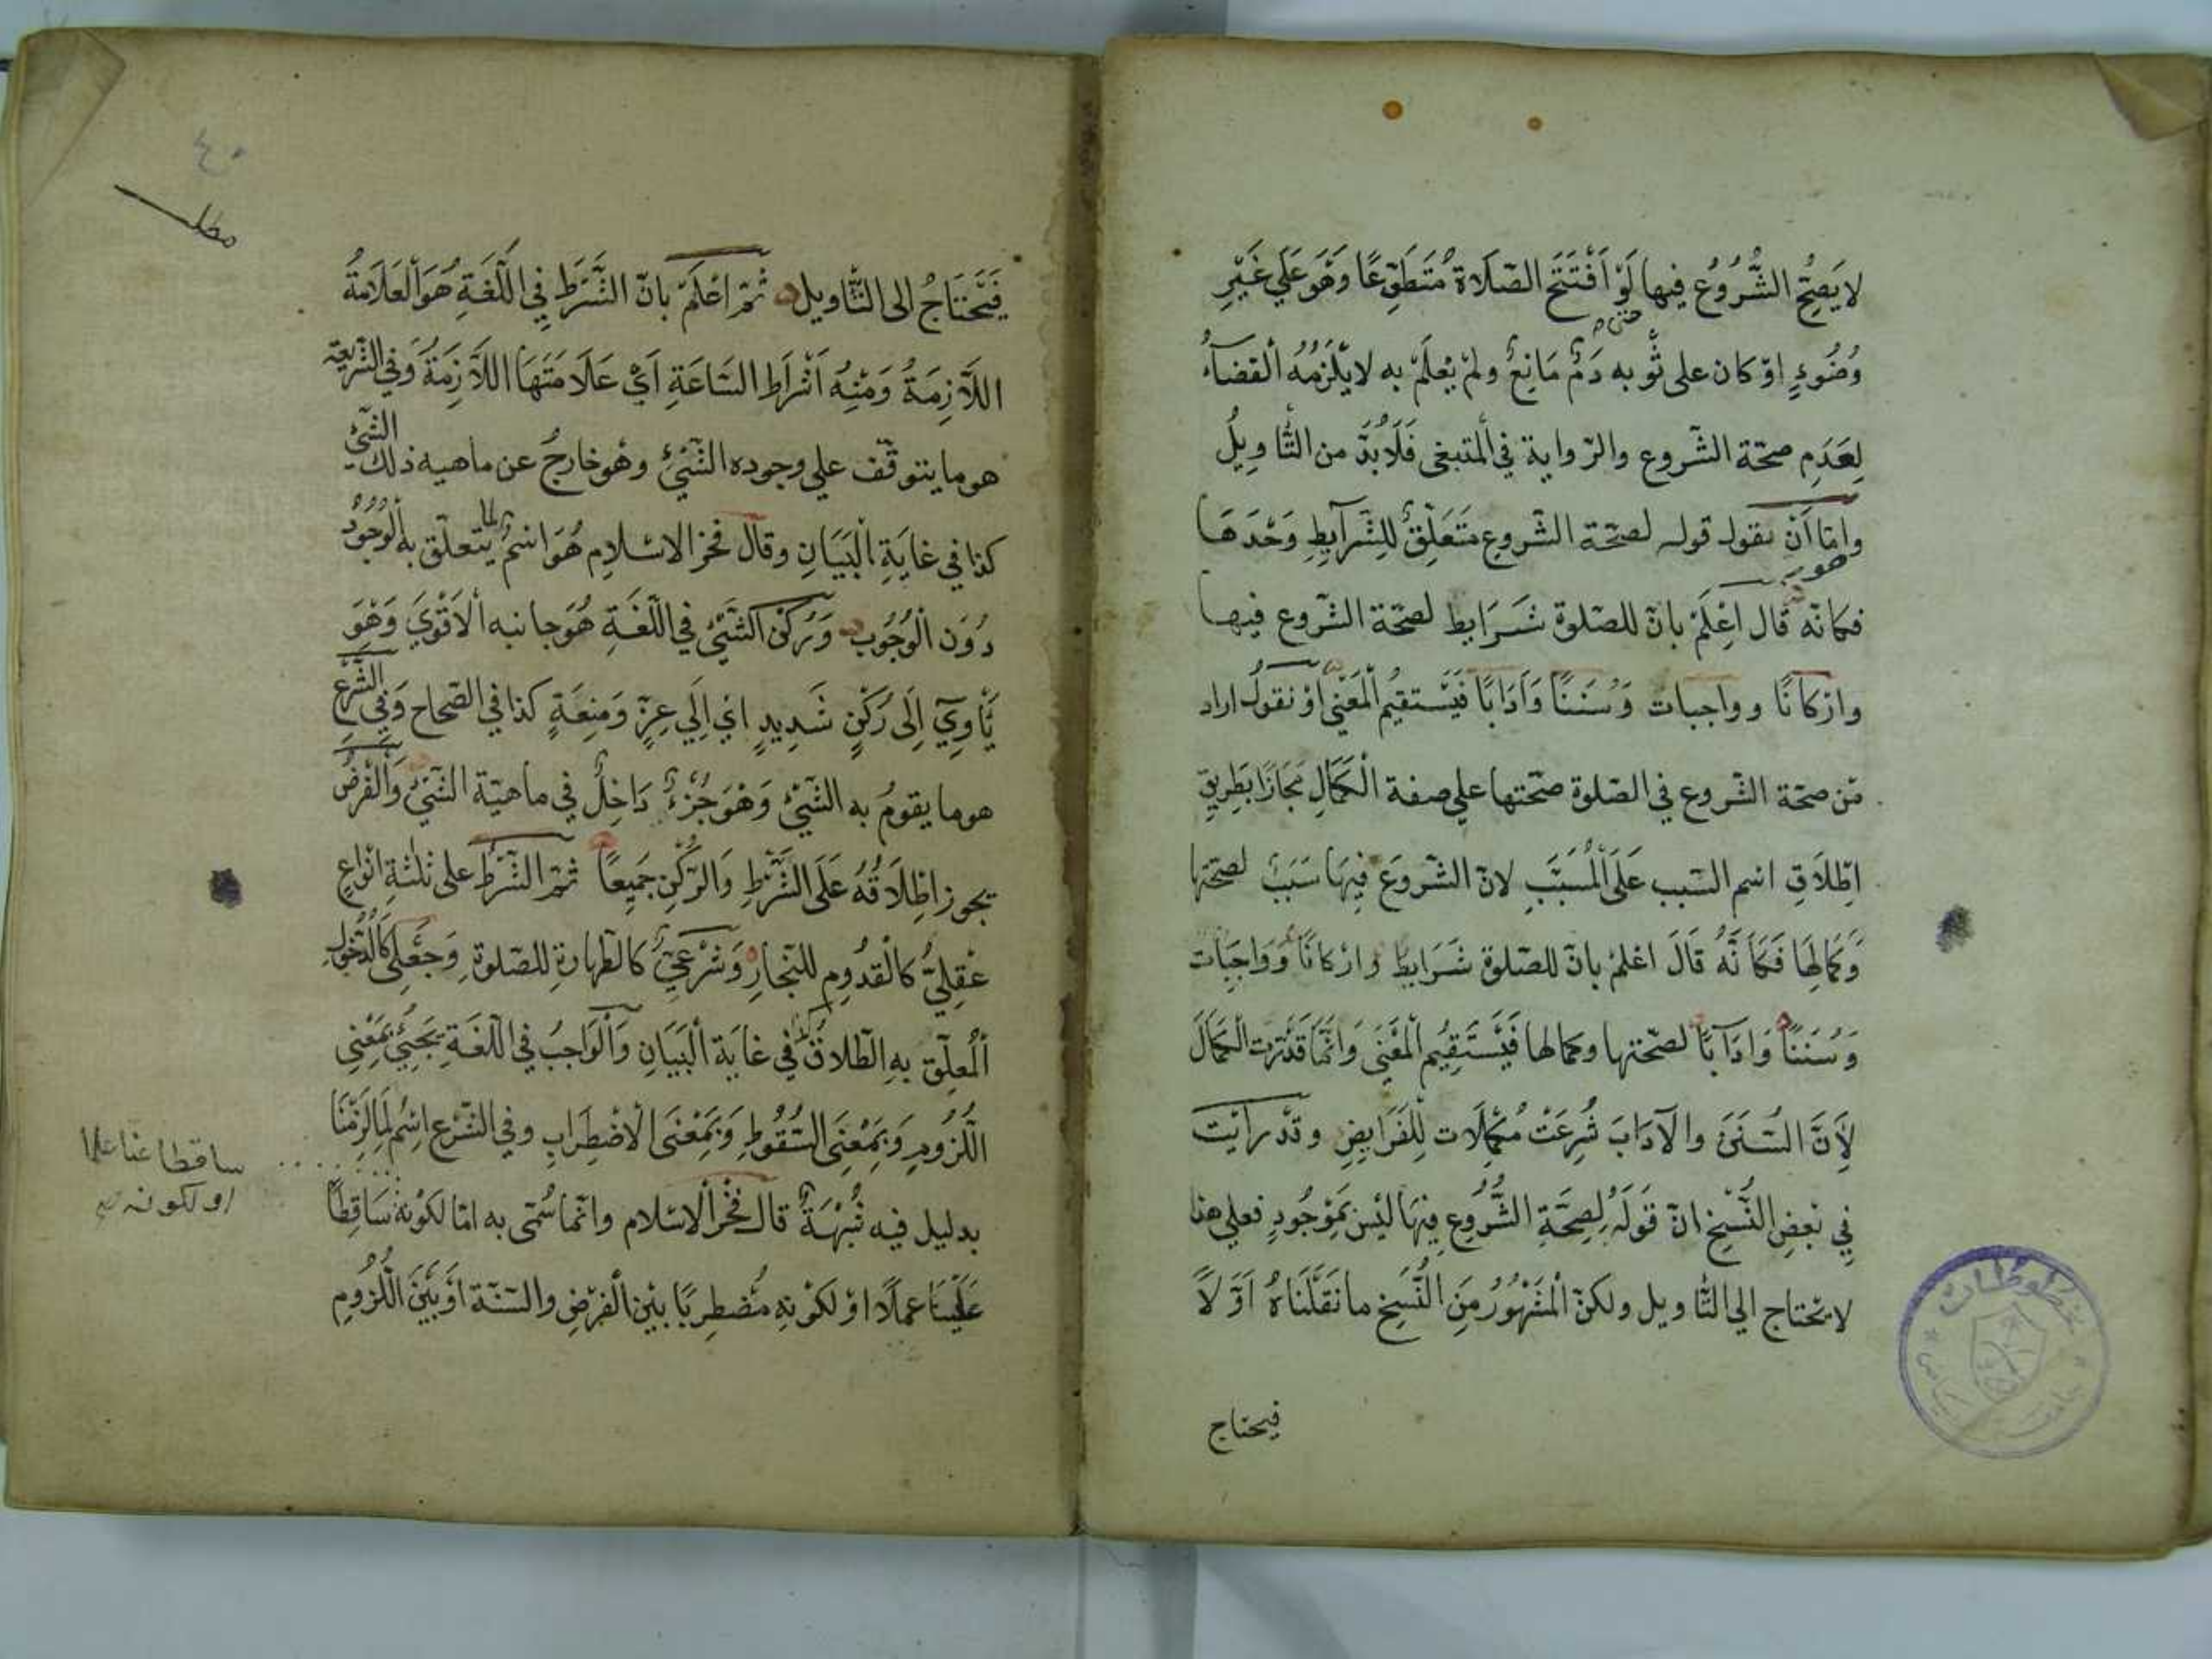 لا يَصِحُّ الشُّرُوُع فيها لَوْ اَفْتَتَحَ الصّلَاة مُتَطَوّعًا وَهْوَ عَلَي غَيْرِ
وُضُوءٍ اوْ كان على ثَوْبه دَمٌ مَانِعٌ ولمْ يُعلَمْ به لا يلْزَمُهُ القضاءُ
لِعَدَمِ صحّة الشّروع والرّواية في المتبغى فَلَا بُدّ من التّأويلُ
وامّا اَنْ نقول قوله لصحّة الشّروع مَتَعَلِقٌ لِلشّرآيطِ وَحْدَهَا
فكانّه قَال اَعِلَمْ بانّ للصّلوة شَرَايط لصحّة الشّروع فيها
وارْكانًا وواجبات وَسُنَنًا وَاَدَابًا فَيَسْتقيُم الْمَعْنى اوْ نقولُ اراد
مّن صحّة الشّروع في الصّلوة صحّتها على صفة الْكَمَالِ مَجَازًا بَطِريقِ
اطِّلَاقِ اسم السّبب عَلَى الْمُسَبَّبِ لانّ الشّروَع فِيهَا سَبَبٌ لصحّتها
وَكمالِهَا فَكَاَنَّهُ قَالَ اعلمْ بانّ للصّلوة شَرَايطا وارْكانًا وَوَاجِبَات
وَسُنَنًا وَادَآبًا لصحّتها وكمالها فَيَسْتَقِيُم الْمَعْنَى وَانّمَا قَدّرت الْكَمَالَ
لِاَنَّ السُّنَنَ والآدَابَ شُرِعَتْ مُكمِّلَات لِلْفَرَايضِ وقدْ رايْت
فِي بَعضِ النُّسَخِ انّ قَولَهُ لِصِحَّةِ الشُّرُوعِ فِيهَا ليْسَ بَمَوْجُودٍ فعلى هذا
لا يحْتاج الي التّأويل ولكنّ الْمَشْهُورُ مِنَ النُّسَخِ ما نَقَلْنَاهُ اَوّلًا
فيحتاج
٤٠
مطلـ
فَيَحْتَاجُ الى التّأويل ثمّ اعْلَمْ بانّ الشَّرَط فيِ اللّغَةِ هُوَ الْعَلَامَةُ
اللَّازِمَةُ وَمْنِهُ اَشْرَاط السّاعَةِ اَيْ عَلَامَتَهَا اللَّازِمَةُ وَفي الشّريعة
هو ما يتوقّف علي وجوده الشّيئُ وهُو خارجٌ عن ماهيه ذلك الشّئ
كذا في غايَةِ الْبَيَانِ وقال فخر الاسْلامِ هُوَ اسْمٌ لما يتعلّق به الْوُجُوُد
دُوَن الْوُجُوبِ وَرُكْنُ الشّيْئِ في اللّغَةِ هُوَ جانبه الْاَقْوَي وَهْوَ
يَأوِيَ اِلَى رُكْنٍ شَدِيدٍ اىْ اِلَي عِزّ وَمنِعَةٍ كذا في الصّحاح وَفِي الشَّرْعِ
هو ما يقومُ به الشّيْئُ وَهْوَ جُزْءٌ دَاخِلٌ في ماهيّة الشّيْئِ وَالْفَرْضُ
يجوز اطِلَاقُهُ عَلَى الشَّرْطِ وَالرّكْنِ جَمِيعًا ثمّ الشّرْطُ على ثلثة انْواعٍ
عَقِلِيّ كالْقدُومِ للنّجارِ وَشرْعيّ كالطّهارةِ للصّلوةِ وَجعْلِي كالدّخول
الْمُعلّقِ بِه الطّلاق كذا في غايَة الْبَيَانِ وَالْوَاجبُ في اللّغَةِ يَجيئُ بمَعْنى
اللّزُومِ وَبَمِعْنَى السُّقُوطِ وَبَمِعْنَى الْاضْطِرَابِ وفي الشّرْع اسْم لِمَا لَزِمْنَا
بدليل فيه شُبْهَةٌ قال فخْر الْاسْلام وانّما سُمّى به امّا لكوْنه سَاقِطًا
عَليْنَا عملًا اوْ لكوْنِهِ مُضطِربًا بيْن الْفرْضِ والسّنّة اوْ بَيْنَ اللّزُومِ
ساقطا عنا علما
او لكونه صح
مخطوطات